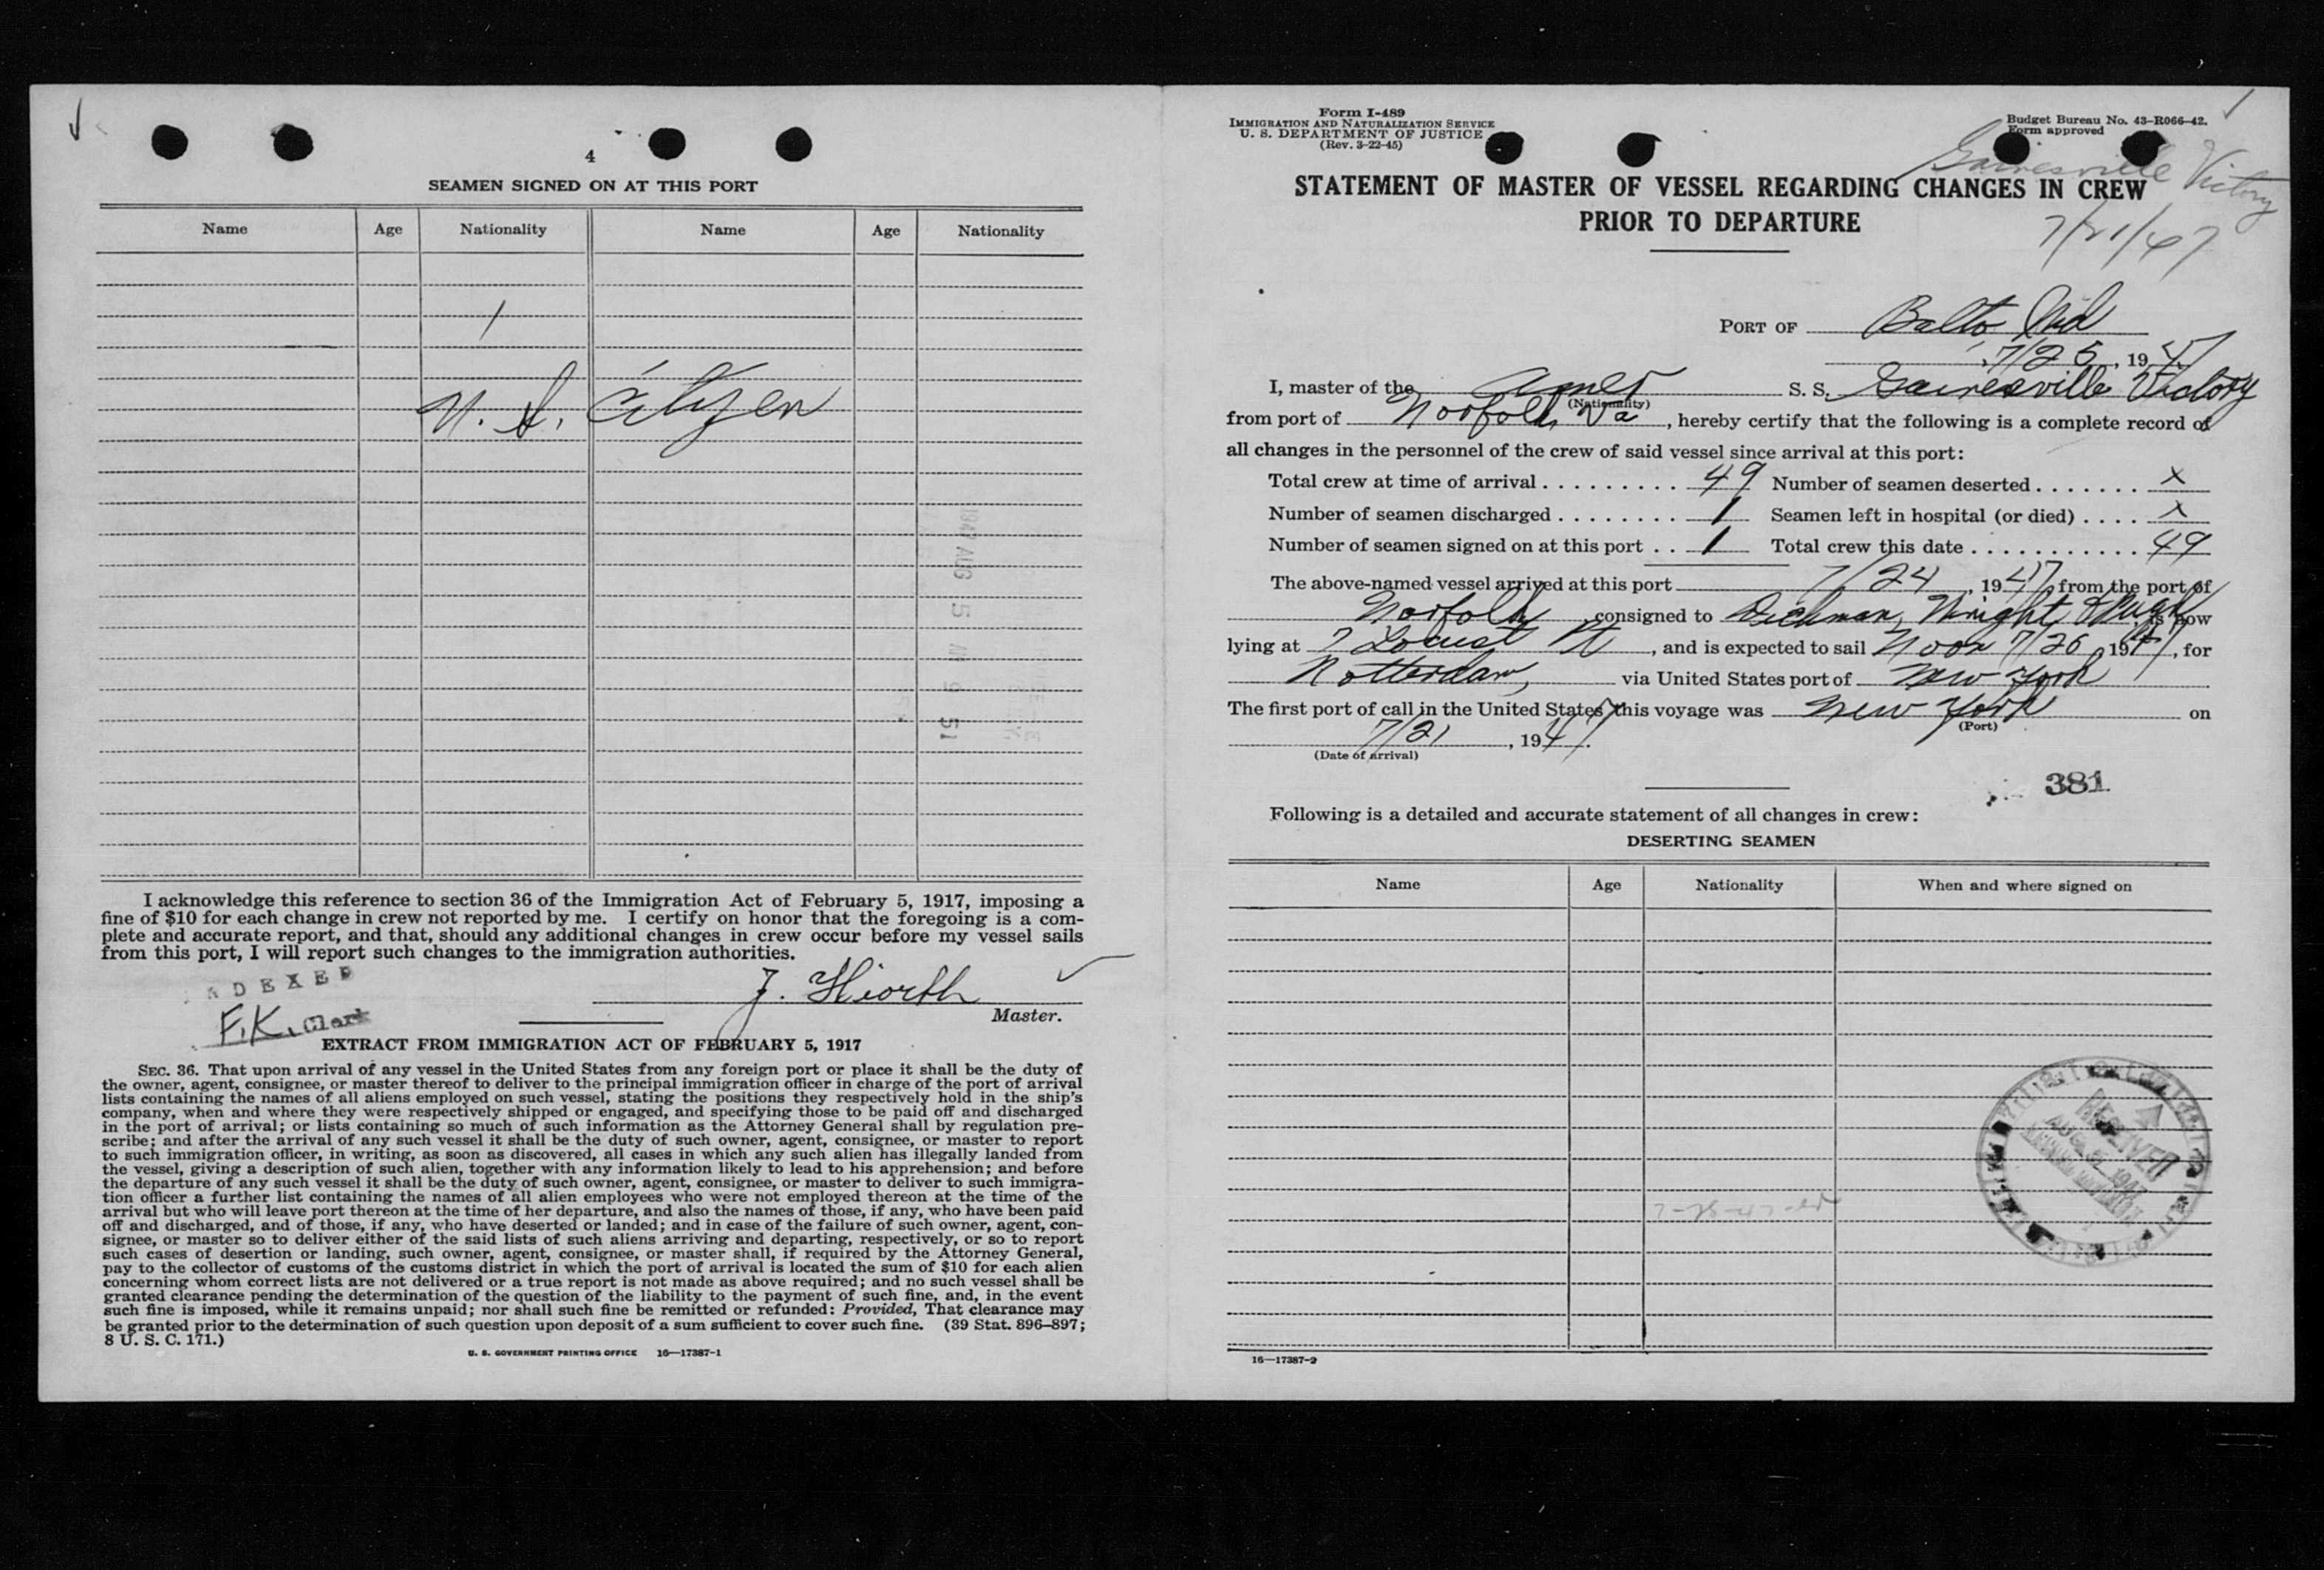 4
SEAMEN SIGNED ON AT THIS PORT
Name Age Nationality Name Age Nationality
1
U. S. Citizen
I acknowledge this reference to section 36 of the Immigration Act of February 5, 1917, imposing a
fine of $10 for each change in crew not reported by me. I certify on honor that the foregoing is a com-
plete and accurate report, and that, should any additional changes in crew occur before my vessel sails
from this port, I will report such changes to the immigration authorities.
INDEXED
J. Hiorth
F.K. Clerk
Master.
EXTRACT FROM IMMIGRATION ACT OF FEBRUARY 5, 1917
SEC. 36. That upon arrival of any vessel in the United States from any foreign port or place it shall be the duty of
the owner, agent, consignee, or master thereof to deliver to the principal immigration officer in charge of the port of arrival
lists containing the names of all aliens employed on such vessel, stating the positions they respectively hold in the ship's
company, when and where they were respectively shipped or engaged, and specifying those to be paid off and discharged
in the port of arrival; or lists containing so much of such information as the Attorney General shall by regulation pre-
scribe; and after the arrival of any such vessel it shall be the duty of such owner, agent, consignee, or master to report
to such immigration officer, in writing, as soon as discovered, all cases in which any such alien has illegally landed from
the vessel, giving a description of such alien, together with any information likely to lead to his apprehension; and before
the departure of any such vessel it shall be the duty of such owner, agent, consignee, or master to deliver to such immigra-
tion officer a further list containing the names of all alien employees who were not employed thereon at the time of the
arrival but who will leave port thereon at the time of her departure, and also the names of those, if any, who have been paid
off and discharged, and of those, if any, who have deserted or landed; and in case of the failure of such owner, agent, con-
signee, or master so to deliver either of the said lists of such aliens arriving and departing, respectively, or so to report
such cases of desertion or landing, such owner, agent, consignee, or master shall, if required by the Attorney General,
pay to the collector of customs of the customs district in which the port of arrival is located the sum of $10 for each alien
concerning whom correct lists are not delivered or a true report is not made as above required; and no such vessel shall be
granted clearance pending the determination of the question of the liability to the payment of such fine, and, in the event
such fine is imposed, while it remains unpaid; nor shall such fine be remitted or refunded: Provided, That clearance may
be granted prior to the determination of such question upon deposit of a sum sufficient to cover such fine. (39 Stat. 896–897;
8 U. S. C. 171.)
U. S. GOVERNMENT PRINTING OFFICE 16—17387-1
Form I-489
IMMIGRATION AND NATURALIZATION SERVICE
U. S. DEPARTMENT OF JUSTICE
(Rev. 3-22-45)
Budget Bureau No. 43-R066-42.
Form approved
Gainesville Victory
7/21/47
STATEMENT OF MASTER OF VESSEL REGARDING CHANGES IN CREW
PRIOR TO DEPARTURE
PORT OF Balto Md
7/25, 1947
I, master of the Amer S. S. Gainesville Victory
(Nationality)
from port of Norfolk, Va, hereby certify that the following is a complete record of
all changes in the personnel of the crew of said vessel since arrival at this port:
Total crew at time of arrival 49 Number of seamen deserted x
Number of seamen discharged 1 Seamen left in hospital (or died) x
Number of seamen signed on at this port 1 Total crew this date 49
The above-named vessel arrived at this port 7/24, 1947 from the port of
Norfolk, consigned to Dichman, Wright & Pugh is now
lying at 7 Locust Pt, and is expected to sail Noon 7/26, 1947, for
Rotterdam, via United States port of New York
The first port of call in the United States this voyage was New York on
(Port)
7/21, 1947.
(Date of arrival)
381
Following is a detailed and accurate statement of all changes in crew:
DESERTING SEAMEN
Name Age Nationality When and where signed on
RECEIVED
AUG 5 1947
16—17387-2